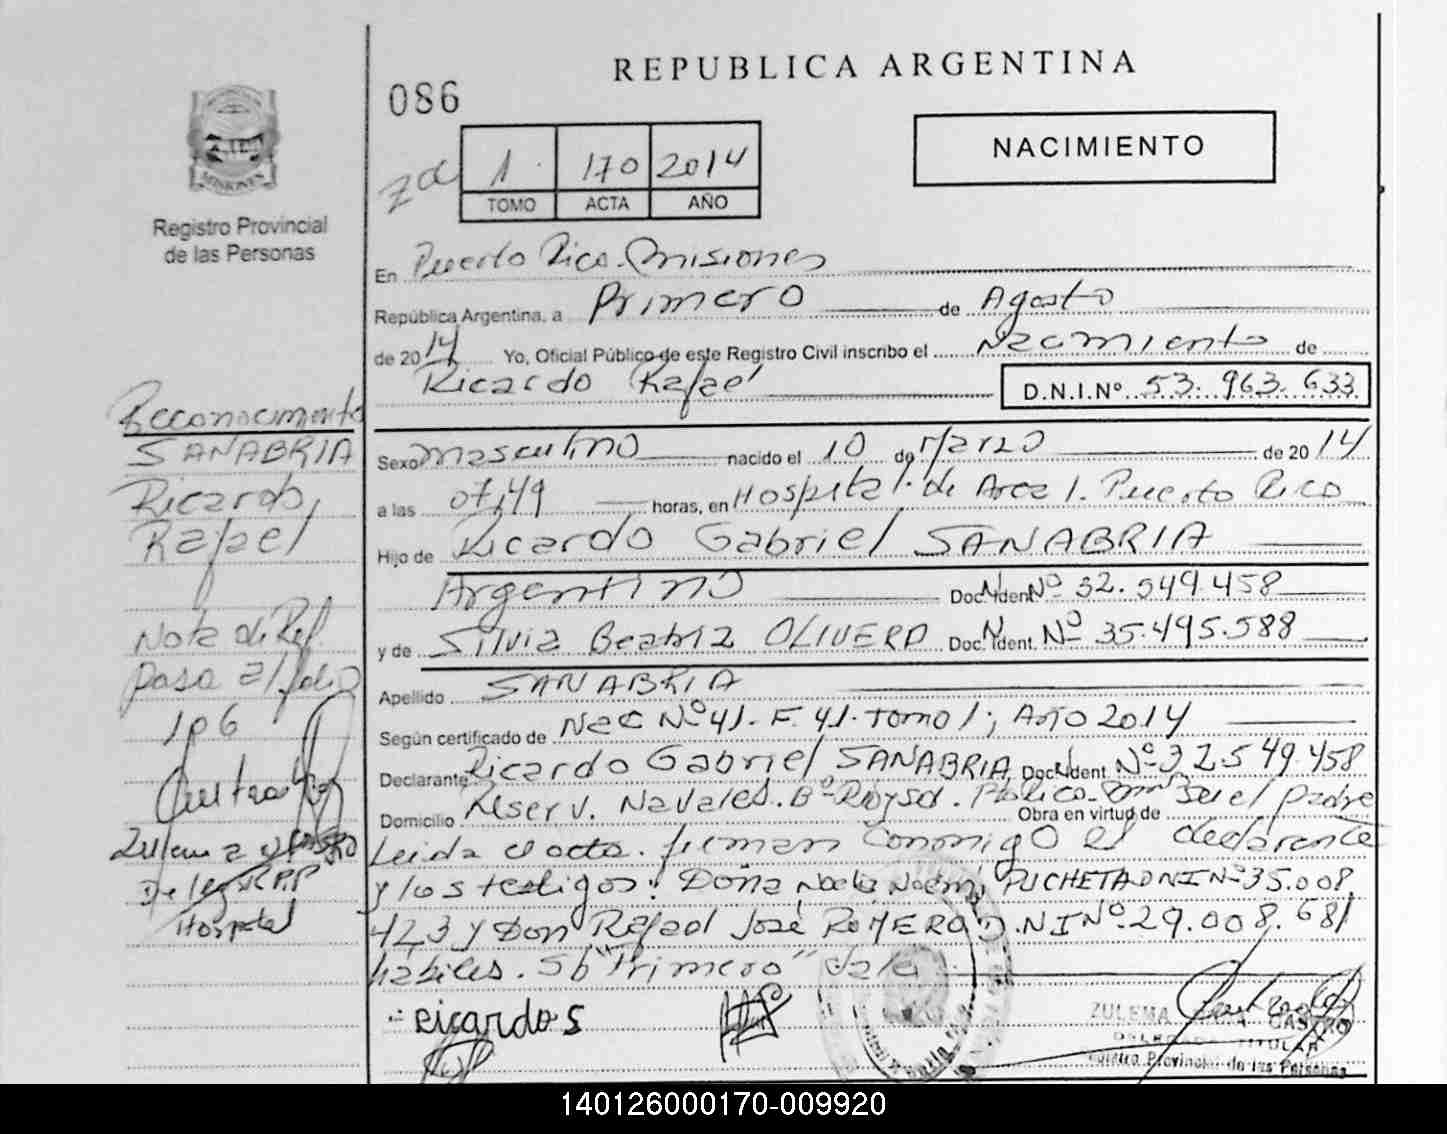 REPUBLICA ARGENTINA
086
NACIMIENTO
1 170 2014
TOMO ACTA AÑO
MISIONES
Registro Provincial
de las Personas
En Puerto Rico. Misiones
República Argentina, a Primero de Agosto
de 2014 Yo, Oficial Público de este Registro Civil inscribo el Nacimiento de
Ricardo Rafael D.N.I.Nº 53.963.633
Sexo masculino nacido el 10 de Marzo de 2014
a las 07,49 horas, en Hospital de Area I. Puerto Rico
Hijo de Ricardo Gabriel SANABRIA
Argentino Doc. Ident. Nº 32.549.458
y de Silvia Beatriz OLIVERA Doc. Ident. Nº 35.495.588
Apellido SANABRIA
Según certificado de Nac Nº 41. F. 41. Tomo 1; Año 2014
Declarante Ricardo Gabriel SANABRIA Doc. Ident. Nº 32.549.458
Domicilio Reserv. Navales. Bº Obra en virtud de Ser el padre
Leida el acta. firman conmigo el declarante
y los testigos: Doña Noelia Noemi PUCHETA DNI Nº 35.008.
423 y Don Rafael José ROMERO D.N.I Nº 29.008.681
habiles. Sb "Primero" Vale
Ricardo S
ZULEMA CASTRO
DELEGADA TITULAR
Registro Provincial de las Personas
Reconocimiento
SANABRIA
Ricardo,
Rafael
Nota de Ref.
pasa al folio
106
Zulema
Deleg R.P.P
Hospital
140126000170-009920